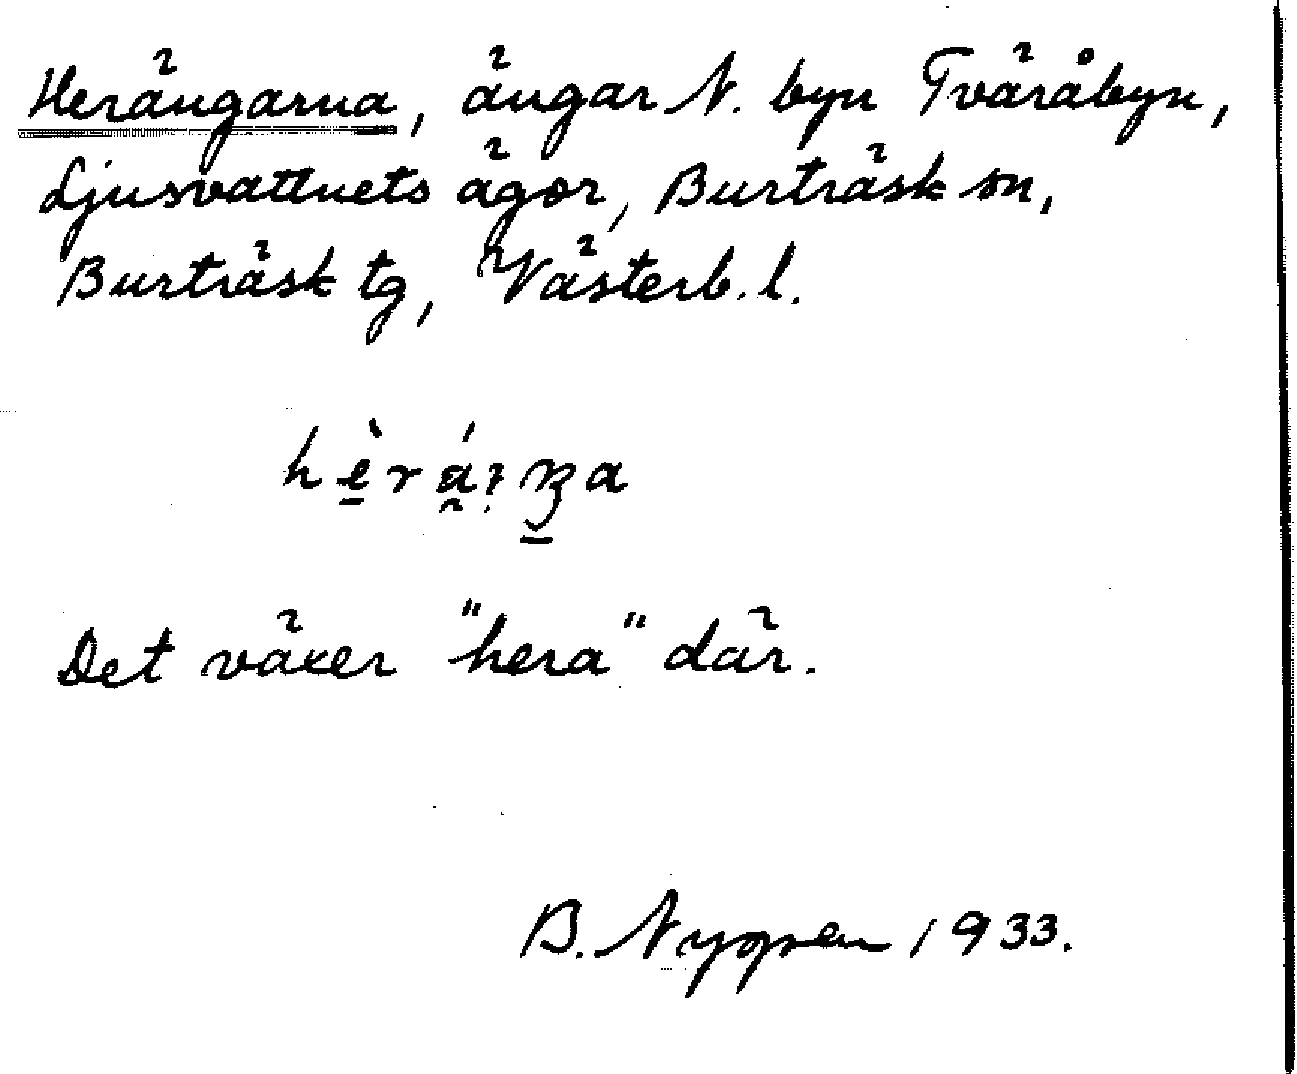 Herängarna, ängar N. byn Tväråbyn,
Ljusvattnets ägor, Burträsk sn,
Burträsk tg, Västerb. l.
Det växer "hera" där.
B. Nygren 1933.